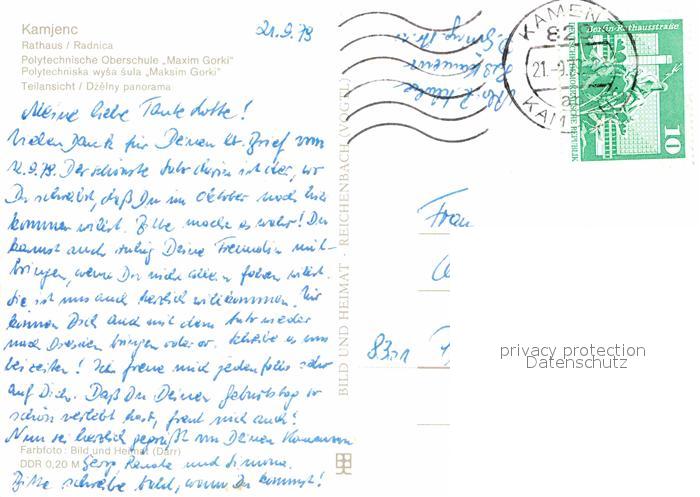 Kamjenc
Rathaus / Radnica
Polytechnische Oberschule „Maxim Gorki"
Polytechniska wyša šula „Maksim Gorki"
Teilansicht / Dźělny panorama
21.9.79
Meine liebe Tante Lotte!
Vielen Dank für Deinen lb. Brief vom
12.9.79. Der schönste Satz darin ist der, wo
Du schreibst, daß Du im Oktober noch hier
kommen willst. Bitte mache es wahr! Du
kannst auch ruhig Deine Freundin mit-
bringen, wenn Du nicht allein fahren willst.
Sie ist uns auch herzlich willkommen. Wir
können Dich auch mit dem Auto wieder
nach Dresden bringen oder so. Schreibe es uns
beizeiten! Ich freue mich jedenfalls sehr
auf Dich. Daß Du Deinen Geburtstag so
schön verlebt hast, freut mich auch!
Nun sei herzlich gegrüßt von Deinen Kamenzern
Georg, Renate und Simona.
Bitte schreibe bald, wann Du kommst!
Farbfoto: Bild und Heimat (Darr)
DDR 0,20 M
BILD UND HEIMAT · REICHENBACH (VOGTL)
KAMENZ
21.-9.79
KAMENZ
Berlin-Rathausstraße
DEUTSCHE DEMOKRATISCHE REPUBLIK
10
Kamenz
Frau
8321
privacy protection
Datenschutz